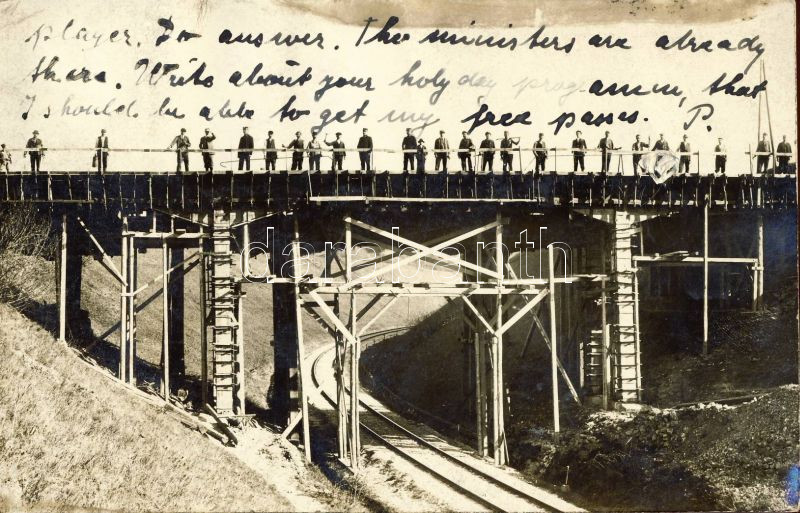 player. Do answer. The ministers are already
there. Write about your holyday programm, that
I should be able to get my free passes. P.
darabanth